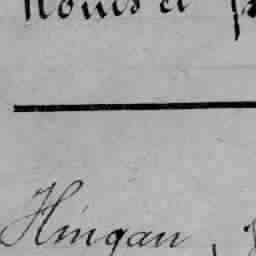 Noms et
Hingan,